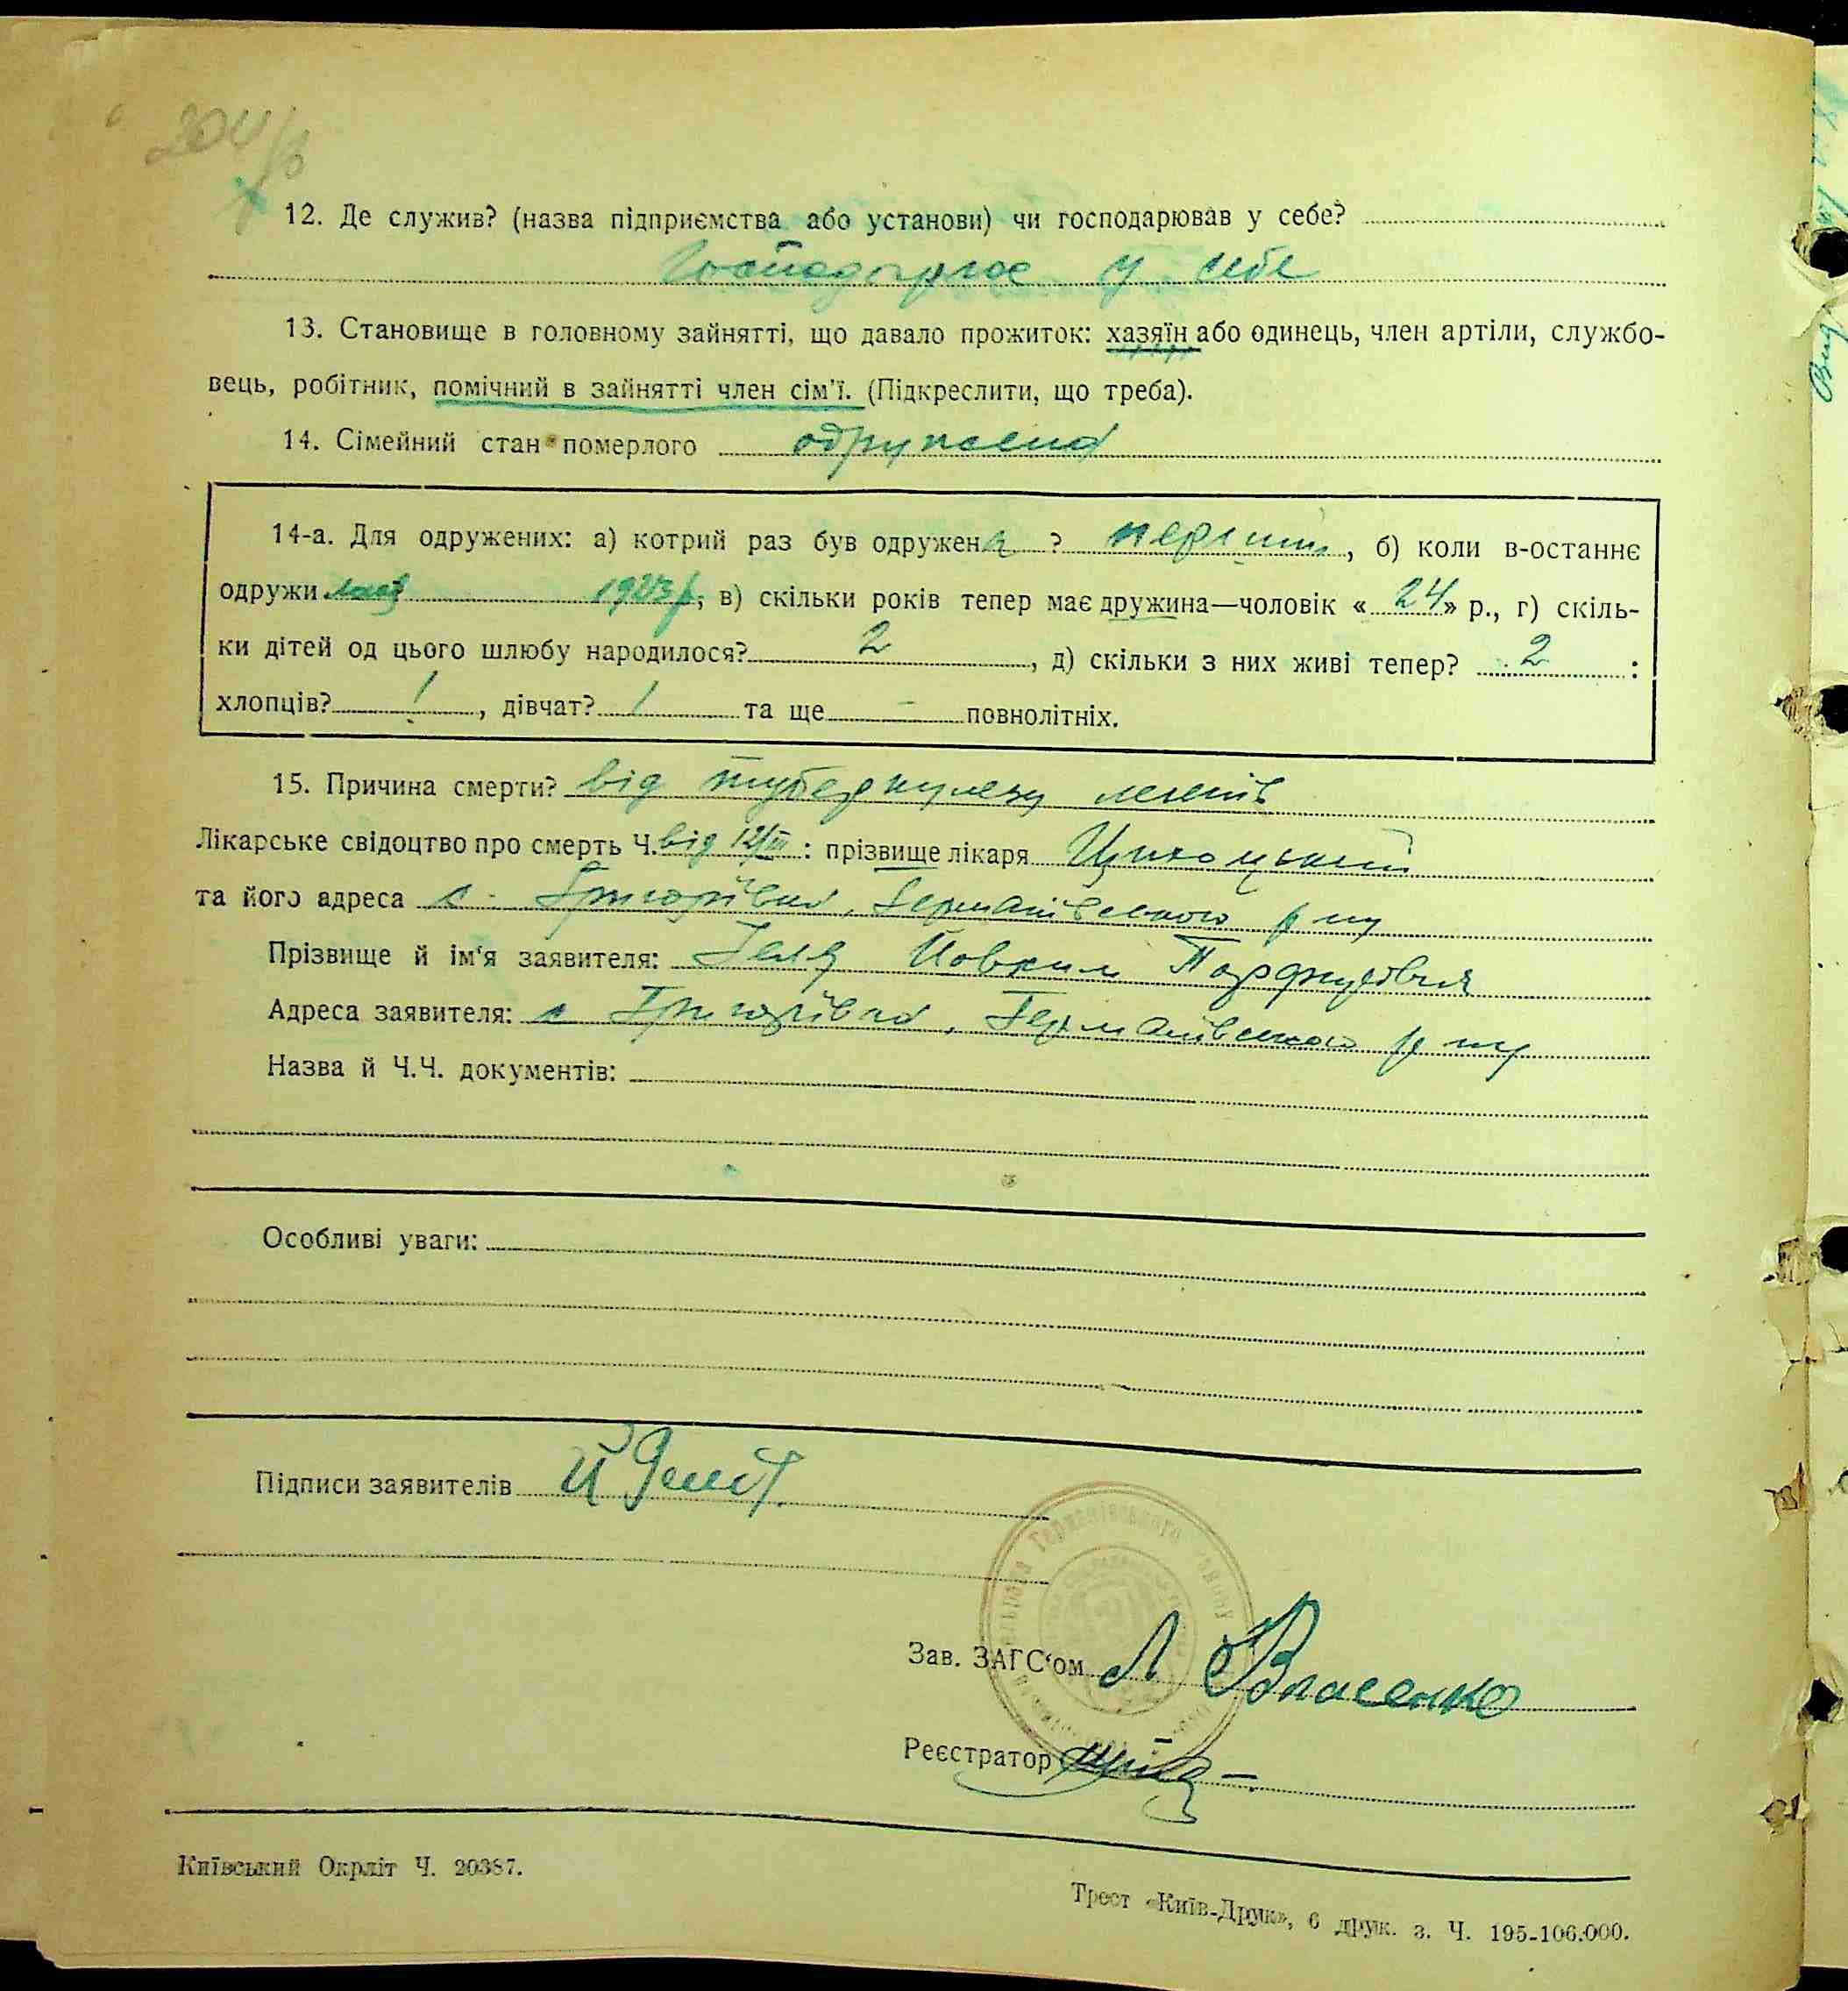 204/в
12. Де служив? (назва підприємства або установи) чи господарював у себе?
Господарює у себе
13. Становище в головному зайнятті, що давало прожиток: хазяїн або одинець, член артіли, службо-
вець, робітник, помічний в зайнятті член сім'ї. (Підкреслити, що треба).
14. Сімейний стан померлого одружена
14-а. Для одружених: а) котрий раз був одружена ? перший, б) коли в-останнє
одружи 1923 р, в) скільки років тепер має дружина—чоловік « 24 » р., г) скіль-
ки дітей од цього шлюбу народилося? 2, д) скільки з них живі тепер? 2 :
хлопців? 1, дівчат? 1 та ще - повнолітніх.
15. Причина смерти? від туберкульозу легенів
Лікарське свідоцтво про смерть Ч. від 12/III : прізвище лікаря
та його адреса с. Григорівка, Германівського р ну
Прізвище й ім'я заявителя: Йовхим
Адреса заявителя: с Григорівка, Германівського р ну
Назва й Ч.Ч. документів:
Особливі уваги:
Підписи заявителів Й
Германівського району
Зав. ЗАГС'ом Л Власенко
Реєстратор
Київський Окрліт Ч. 20387.
Трест «Київ-Друк», 6 друк. з. Ч. 195-106.000.